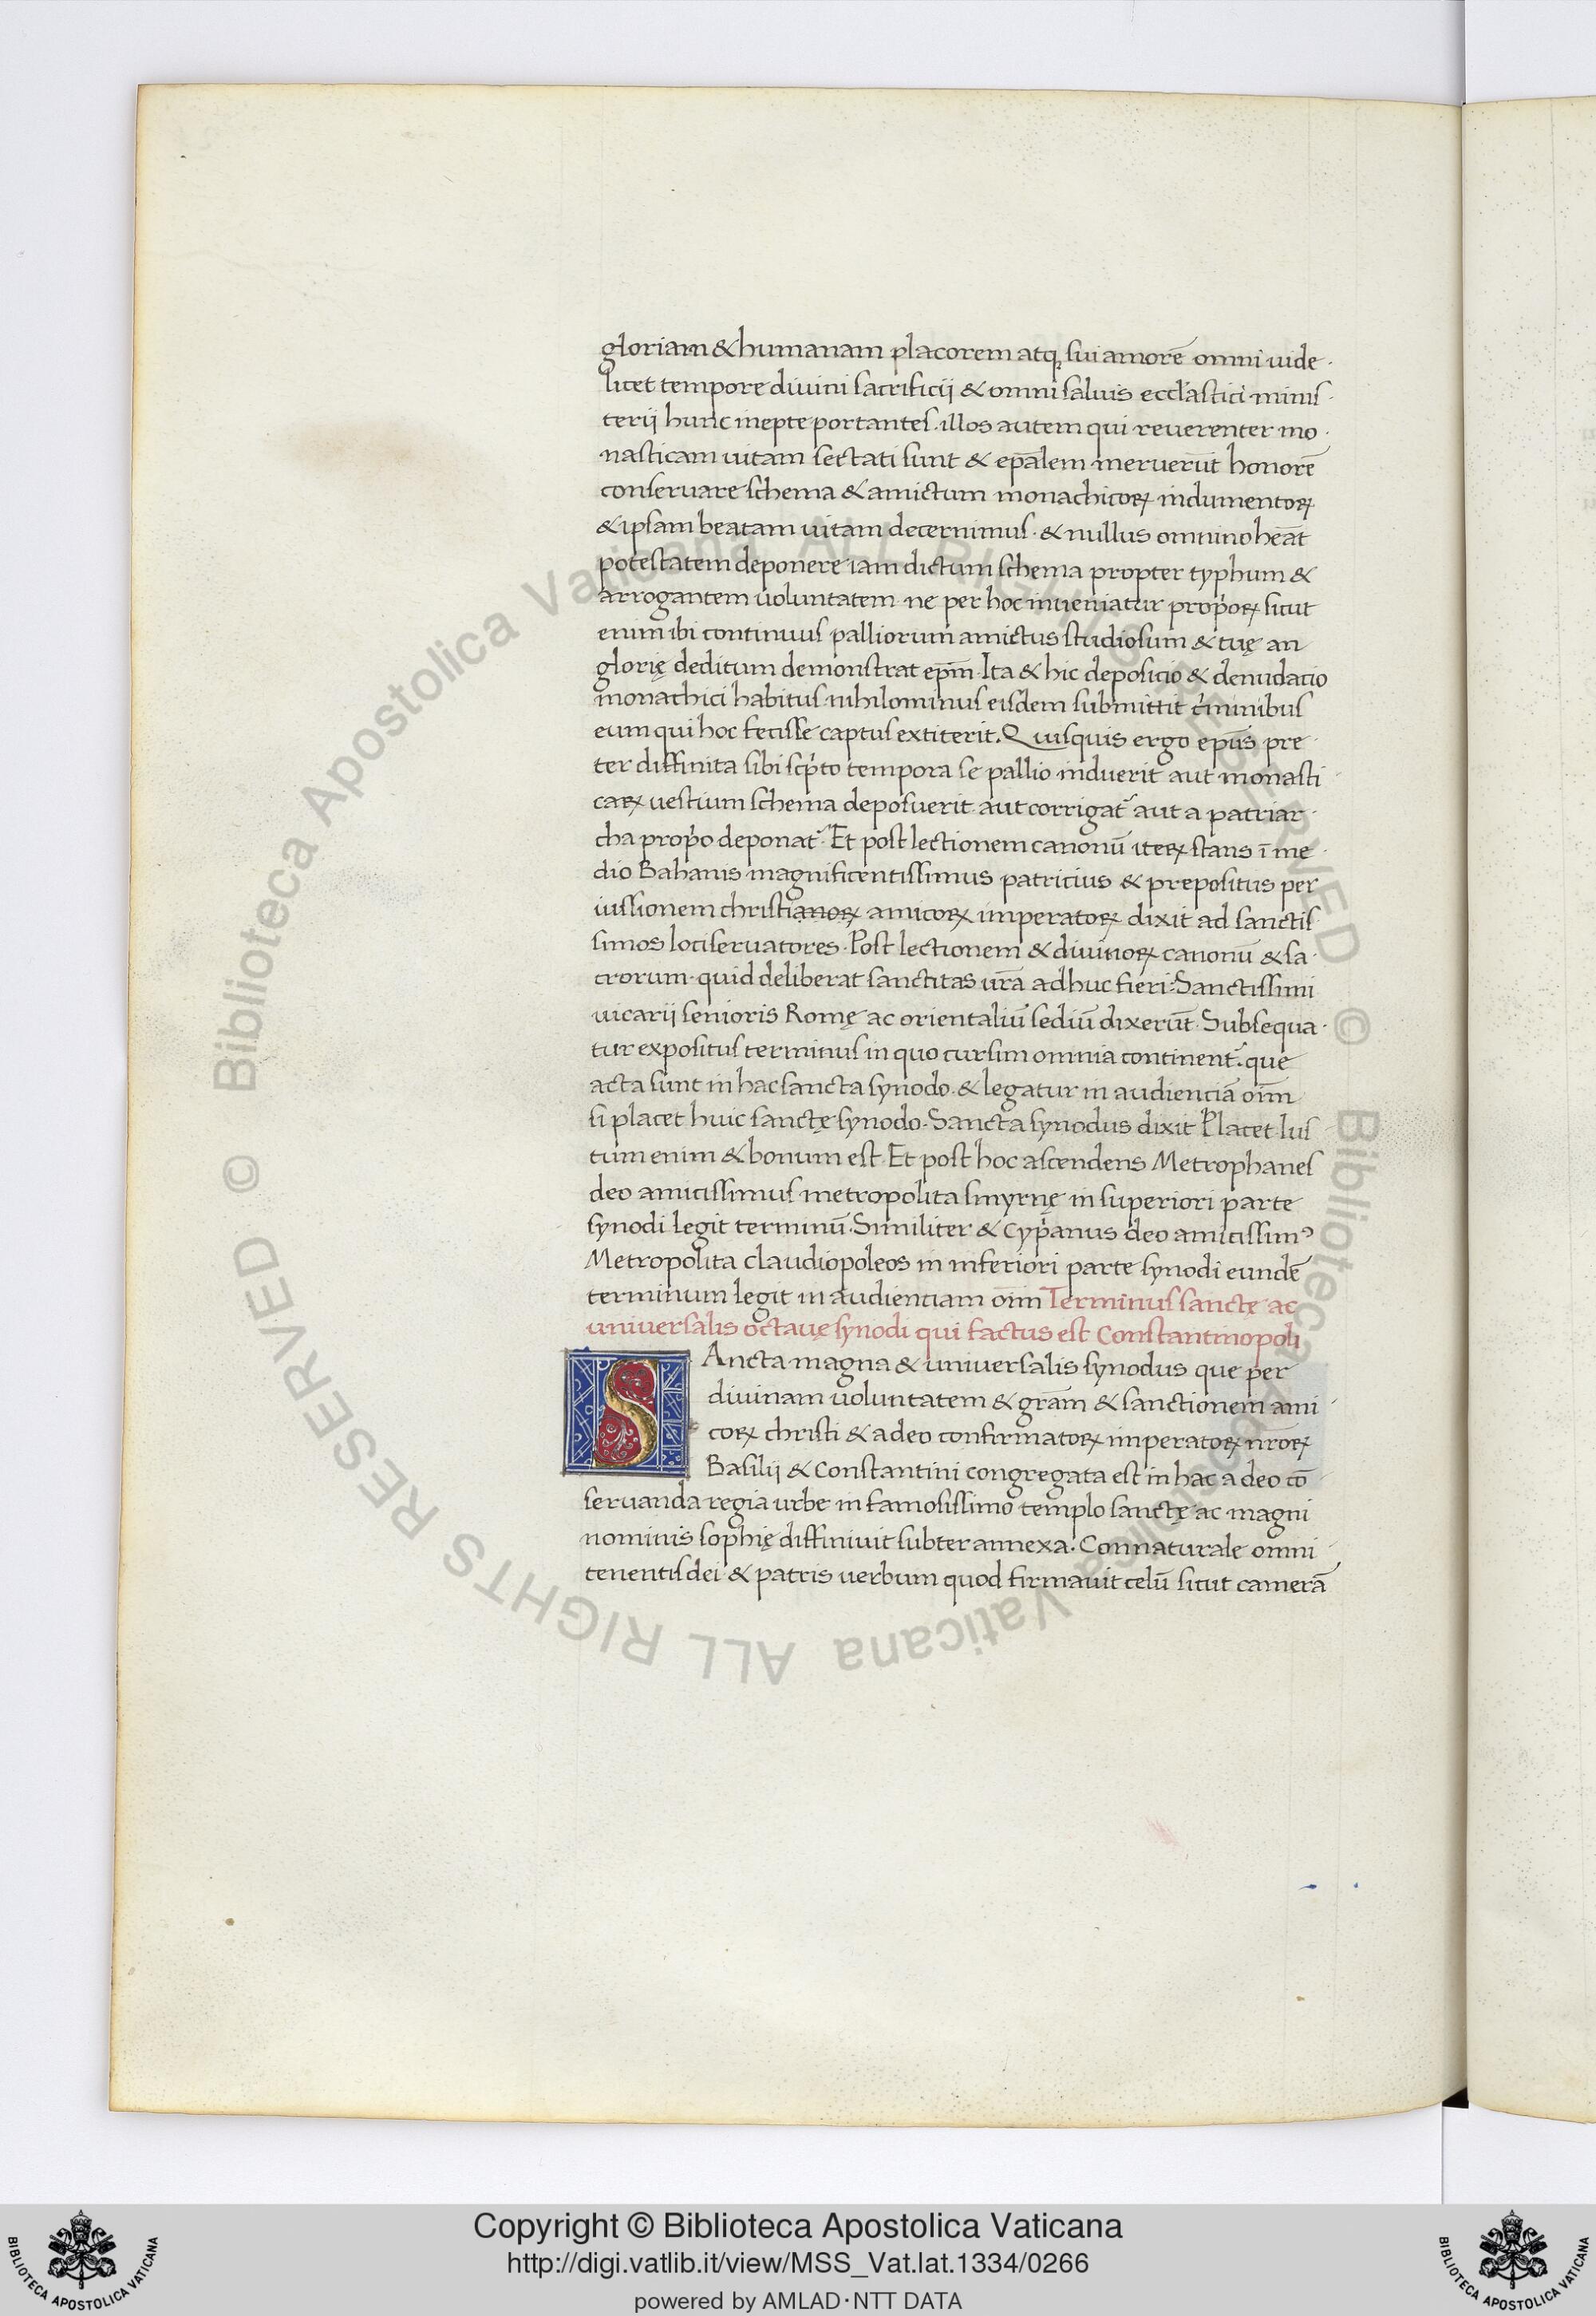 gloriam & humanam placorem atq; sui amorē omni uide
licet tempore diuini sacrificij & omni saluis eccl'astici minis
terij hunc inepte portantes. illos autem qui reuerenter mo
nasticam uitam sectati sunt & ep̄alem meruerūt honorē
conseruare schema & amictum monachicoꝝ indumentoꝝ
& ipsam beatam uitam decernimus. & nullus omnino hēat
potestatem deponere iam dictum schema propter typhum &
arrogantem uoluntatem ne per hoc inueniatur
enim ibi continuus palliorum amictus studiosum & tuę an
glorię deditum demonstrat ep̄m. Ita & hic depositio & denudatio
monachici habitus nihilominus eisdem submittit c̓minibus
eum qui hoc fecisse captus extiterit. Quisquis ergo ep̄us pre
ter diffinita sibi sc̓pto tempora se pallio induerit aut monasti
caꝝ uestium schema deposuerit aut corrigat᷑ aut a patriar
cha prop̓o deponat᷑. Et post lectionem canonū iteꝝ stans ī me
dio Bahanis magnificentissimus patricius & prepositus per
iussionem christianoꝝ amicoꝝ imperatoꝝ dixit ad sanctis
simos lociseruatores. Post lectionem & diuinoꝝ canonū & sa
crorum quid deliberat sanctitas ur̄a adhuc fieri. Sanctissimi
uicarij senioris Romę ac orientaliū sediū dixerūt. Subsequa
tur expositus terminus in quo cursim omnia continent᷑. que
acta sunt in hac sancta synodo. & legatur in audienciā oīm
si placet huic sanctę synodo. Sancta synodus dixit Placet Ius
tum enim & bonum est. Et post hoc ascendens Metrophanes
deo amicissimus metropolita smyrnę in superiori parte
synodi legit terminū. Similiter & Cyp̓anus deo amicissimꝰ
Metropolita claudiopoleos in inferiori parte synodi eundē
terminum legit in audientiam oīm Terminus sanctę ac
uniuersalis octauę synodi qui factus est Constantinopoli
SAncta magna & uniuersalis synodus que per
diuinam uoluntatem & grām & sanctionem ami
coꝝ christi & a deo confirmatoꝝ imperatoꝝ nr̄oꝝ
Basilij & Constantini congregata est in hac a deo cō
seruanda regia urbe in famosissimo templo sanctę ac magni
nominis sophię diffiniuit subter annexa. Connaturale omni
tenentis dei & patris uerbum quod firmauit celū sicut camerā
© Biblioteca Apostolica Vaticana ALL RIGHTS RESERVED © Biblioteca Apostolica Vaticana ALL RIGHTS RESERVED
Copyright © Biblioteca Apostolica Vaticana
http://digi.vatlib.it/view/MSS_Vat.lat.1334/0266
powered by AMLAD·NTT DATA
BIBLIOTECA APOSTOLICA VATICANA
BIBLIOTECA APOSTOLICA VATICANA